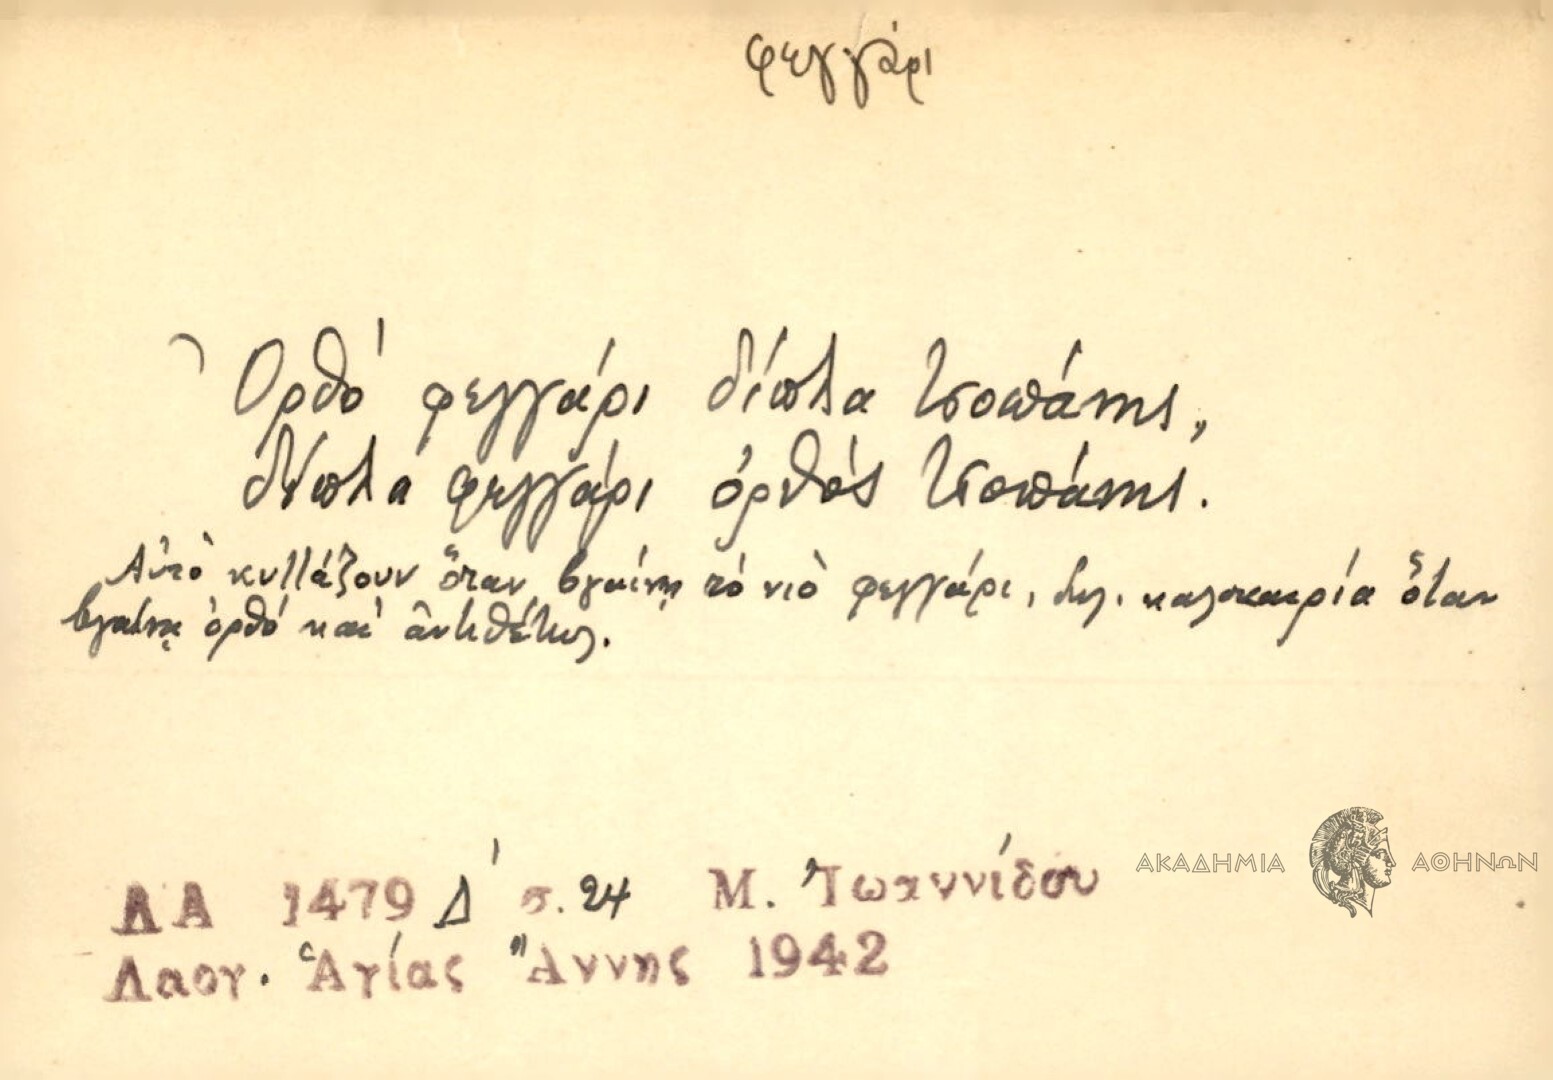 φεγγάρι
Ὀρθό φεγγάρι δίπλα τσοπάνης,
δίπλα φεγγάρι ὀρθός τσοπάνης.
Αὐτὸ κυττάζουν ὅταν βγαίνῃ τὸ νιὸ φεγγάρι, δηλ. καλοκαιρία ὅταν
βγαίνῃ ὀρθό καὶ ἀντιθέτως.
ΛΑ 1479 Δ' σ. 24 Μ. Ἰωαννίδου
Λαογ. Ἁγίας Ἄννης 1942
ΑΚΑΔΗΜΙΑ ΑΘΗΝΩΝ